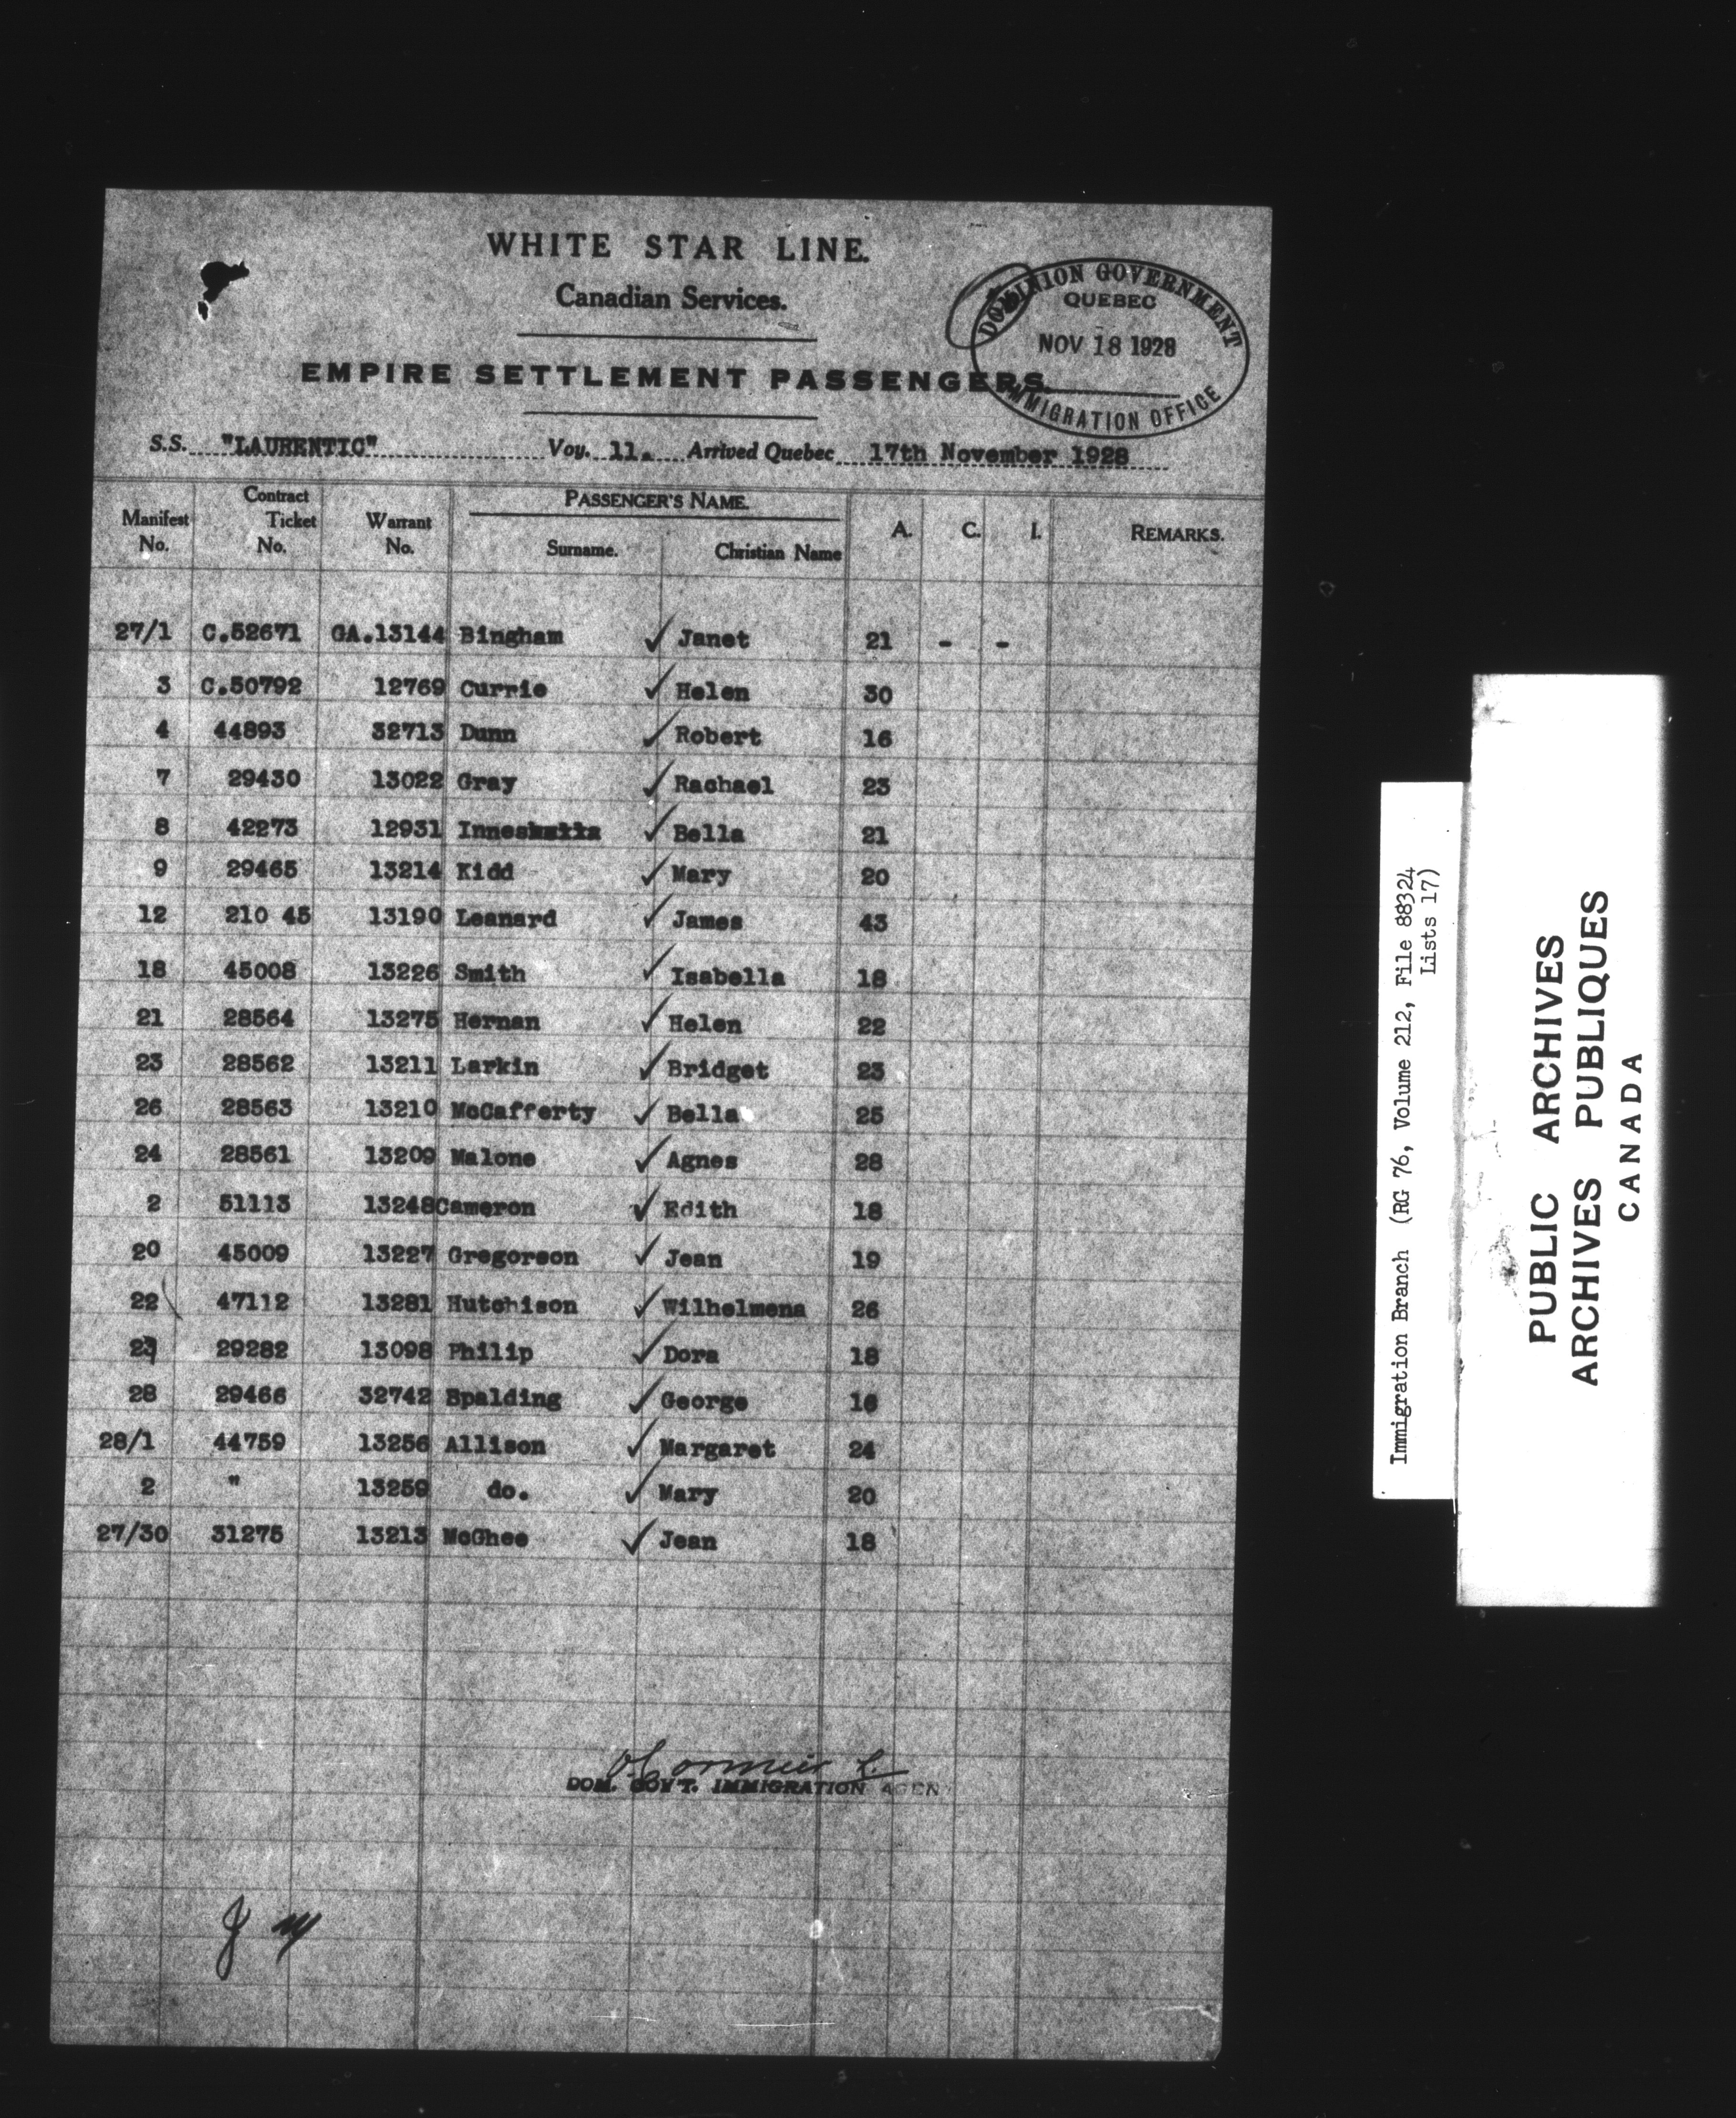 WHITE STAR LINE.
Canadian Services.
EMPIRE SETTLEMENT PASSENGERS.
DOMINION GOVERNMENT
QUEBEC
NOV 18 1928
IMMIGRATION OFFICE
S.S. "LAURENTIC" Voy. 11. Arrived Quebec 17th November 1928
Manifest No. Contract Ticket No. Warrant No. PASSENGER'S NAME. Surname. Christian Name A. C. I. REMARKS.
27/1 C.52671 GA.13144 Bingham ✓ Janet 21 - -
3 C.50792 12769 Currie ✓ Helen 30
4 44893 32713 Dunn ✓ Robert 16
7 29430 13022 Gray ✓ Rachael 23
8 42273 12931 Innes ✓ Bella 21
9 29465 13214 Kidd ✓ Mary 20
12 210 45 13190 Leanard ✓ James 43
18 45008 13226 Smith ✓ Isabella 18
21 28564 13275 Hernan ✓ Helen 22
23 28562 13211 Larkin ✓ Bridget 23
26 28563 13210 McCafferty ✓ Bella 25
24 28561 13209 Malone ✓ Agnes 28
2 51113 13248 Cameron ✓ Edith 18
20 45009 13227 Gregorson ✓ Jean 19
22 47112 13281 Hutchison ✓ Wilhelmena 26
29282 13098 Philip ✓ Dora 18
28 29466 32742 Spalding ✓ George 16
28/1 44759 13256 Allison ✓ Margaret 24
2 " 13259 do. ✓ Mary 20
27/30 31275 13213 McGhee ✓ Jean 18
DOM. GOV'T. IMMIGRATION AGEN
Immigration Branch (RG 76, Volume 212, File 88324
Lists 17)
PUBLIC ARCHIVES
ARCHIVES PUBLIQUES
CANADA